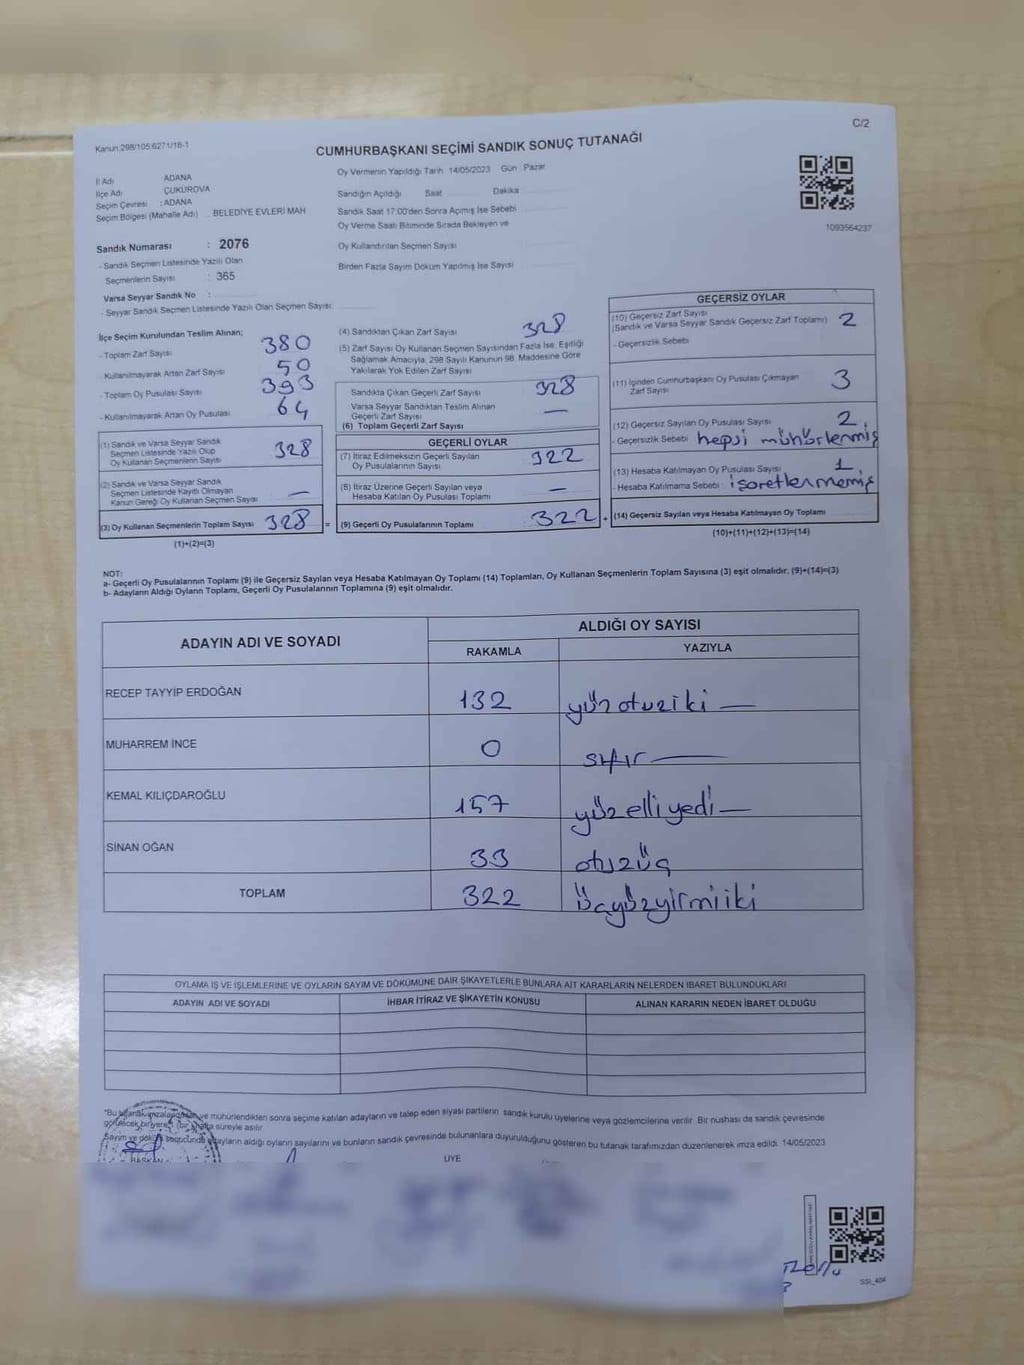 C/2
Kanun 298/105:6271/18-1
CUMHURBAŞKANI SEÇİMİ SANDIK SONUÇ TUTANAĞI
İl Adı ADANA
İlçe Adı ÇUKUROVA
Seçim Çevresi : ADANA
Seçim Bölgesi (Mahalle Adı) BELEDİYE EVLERİ MAH
Sandık Numarası : 2076
- Sandık Seçmen Listesinde Yazılı Olan
Seçmenlerin Sayısı : 365
Varsa Seyyar Sandık No :
- Seyyar Sandık Seçmen Listesinde Yazılı Olan Seçmen Sayısı
Oy Vermenin Yapıldığı Tarih 14/05/2023 Gün : Pazar
Sandığın Açıldığı Saat Dakika
Sandık Saat 17:00'den Sonra Açılmış İse Sebebi
Oy Verme Saati Bitiminde Sırada Bekleyen ve
Oy Kullandırılan Seçmen Sayısı
Birden Fazla Sayım Döküm Yapılmış İse Sayısı
1093564237
İlçe Seçim Kurulundan Teslim Alınan;
- Toplam Zarf Sayısı 380
- Kullanılmayarak Artan Zarf Sayısı 50
- Toplam Oy Pusulası Sayısı 393
- Kullanılmayarak Artan Oy Pusulası 64
(1) Sandık ve Varsa Seyyar Sandık
Seçmen Listesinde Yazılı Olup
Oy Kullanan Seçmenlerin Sayısı 328
(2) Sandık ve Varsa Seyyar Sandık
Seçmen Listesinde Kayıtlı Olmayan
Kanun Gereği Oy Kullanan Seçmen Sayısı —
(3) Oy Kullanan Seçmenlerin Toplam Sayısı 328 =
(1)+(2)=(3)
(4) Sandıktan Çıkan Zarf Sayısı 328
(5) Zarf Sayısı Oy Kullanan Seçmen Sayısından Fazla İse, Eşitliği
Sağlamak Amacıyla, 298 Sayılı Kanunun 98. Maddesine Göre
Yakılarak Yok Edilen Zarf Sayısı
Sandıkta Çıkan Geçerli Zarf Sayısı 328
Varsa Seyyar Sandıktan Teslim Alınan
Geçerli Zarf Sayısı —
(6) Toplam Geçerli Zarf Sayısı
GEÇERLİ OYLAR
(7) İtiraz Edilmeksizin Geçerli Sayılan
Oy Pusulalarının Sayısı 322
(8) İtiraz Üzerine Geçerli Sayılan veya
Hesaba Katılan Oy Pusulası Toplamı —
(9) Geçerli Oy Pusulalarının Toplamı 322 +
GEÇERSİZ OYLAR
(10) Geçersiz Zarf Sayısı
(Sandık ve Varsa Seyyar Sandık Geçersiz Zarf Toplamı) 2
- Geçersizlik Sebebi
(11) İçinden Cumhurbaşkanı Oy Pusulası Çıkmayan
Zarf Sayısı 3
(12) Geçersiz Sayılan Oy Pusulası Sayısı 2
- Geçersizlik Sebebi hepsi mühürlenmiş
(13) Hesaba Katılmayan Oy Pusulası Sayısı 1
- Hesaba Katılmama Sebebi : işaretlenmemiş
(14) Geçersiz Sayılan veya Hesaba Katılmayan Oy Toplamı
(10)+(11)+(12)+(13)=(14)
NOT:
a- Geçerli Oy Pusulalarının Toplamı (9) ile Geçersiz Sayılan veya Hesaba Katılmayan Oy Toplamı (14) Toplamları, Oy Kullanan Seçmenlerin Toplam Sayısına (3) eşit olmalıdır. (9)+(14)=(3)
b- Adayların Aldığı Oyların Toplamı, Geçerli Oy Pusulalarının Toplamına (9) eşit olmalıdır.
ADAYIN ADI VE SOYADI ALDIĞI OY SAYISI
RAKAMLA YAZIYLA
RECEP TAYYİP ERDOĞAN 132 yüzotuziki —
MUHARREM İNCE 0 sıfır —
KEMAL KILIÇDAROĞLU 157 yüzelliyedi —
SİNAN OĞAN 33 otuzüç
TOPLAM 322 üçyüzyirmiiki
OYLAMA İŞ VE İŞLEMLERİNE VE OYLARIN SAYIM VE DÖKÜMÜNE DAİR ŞİKAYETLERLE BUNLARA AİT KARARLARIN NELERDEN İBARET BULUNDUKLARI
ADAYIN ADI VE SOYADI İHBAR İTİRAZ VE ŞİKAYETİN KONUSU ALINAN KARARIN NEDEN İBARET OLDUĞU
*Bu tutanak imzalandıktan ve mühürlendikten sonra seçime katılan adayların ve talep eden siyasi partilerin sandık kurulu üyelerine veya gözlemcilerine verilir. Bir nüshası da sandık çevresinde
görülecek bir yere süreyle asılır.
Sayım ve döküm sonucunda adayların aldığı oyların sayılarını ve bunların sandık çevresinde bulunanlara duyurulduğunu gösteren bu tutanak tarafımızdan düzenlenerek imza edildi. 14/05/2023
BAŞKAN ÜYE
SSI_404